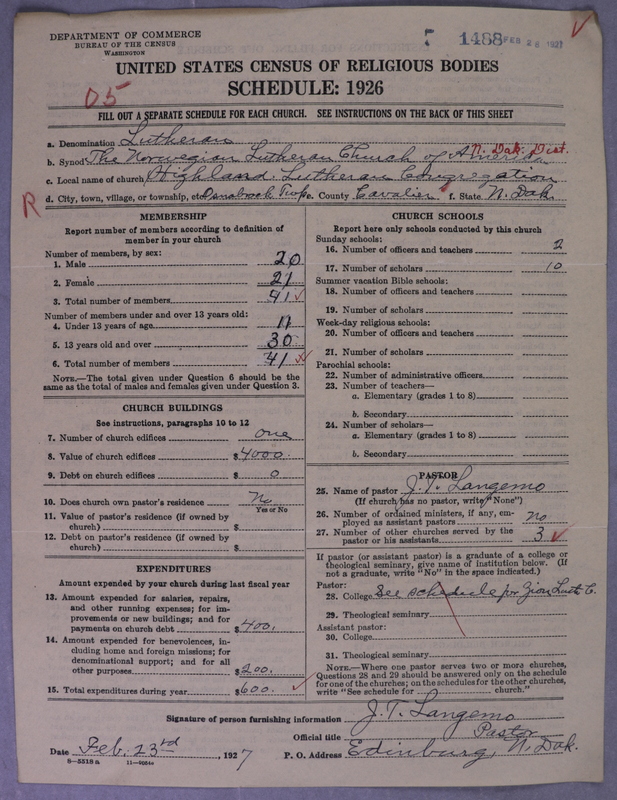 DEPARTMENT OF COMMERCE
BUREAU OF THE CENSUS
WASHINGTON
1488 FEB 28 1927
UNITED STATES CENSUS OF RELIGIOUS BODIES
SCHEDULE: 1926
D5
FILL OUT A SEPARATE SCHEDULE FOR EACH CHURCH. SEE INSTRUCTIONS ON THE BACK OF THIS SHEET
a. Denomination Lutheran
b. Synod The Norwegian Lutheran Church of America N. Dak. Dist.
c. Local name of church Highland Lutheran Congregation
R
d. City, town, village, or township, etc. Osnabrock Twp e. County Cavalier f. State N. Dak.
MEMBERSHIP
Report number of members according to definition of
member in your church
Number of members, by sex:
1. Male 20
2. Female 21
3. Total number of members 41
Number of members under and over 13 years old:
4. Under 13 years of age 11
5. 13 years old and over 30
6. Total number of members 41
NOTE.—The total given under Question 6 should be the
same as the total of males and females given under Question 3.
CHURCH BUILDINGS
See instructions, paragraphs 10 to 12
7. Number of church edifices one
8. Value of church edifices $4000.
9. Debt on church edifices $ 0
10. Does church own pastor's residence No
Yes or No
11. Value of pastor's residence (if owned by
church) $
12. Debt on pastor's residence (if owned by
church) $
EXPENDITURES
Amount expended by your church during last fiscal year
13. Amount expended for salaries, repairs,
and other running expenses; for im-
provements or new buildings; and for
payments on church debt $400.
14. Amount expended for benevolences, in-
cluding home and foreign missions; for
denominational support; and for all
other purposes $200.
15. Total expenditures during year $600.
CHURCH SCHOOLS
Report here only schools conducted by this church
Sunday schools:
16. Number of officers and teachers 2
17. Number of scholars 10
Summer vacation Bible schools:
18. Number of officers and teachers
19. Number of scholars
Week-day religious schools:
20. Number of officers and teachers
21. Number of scholars
Parochial schools:
22. Number of administrative officers
23. Number of teachers—
a. Elementary (grades 1 to 8)
b. Secondary
24. Number of scholars—
a. Elementary (grades 1 to 8)
b. Secondary
PASTOR
25. Name of pastor J. T. Langemo
(If church has no pastor, write "None")
26. Number of ordained ministers, if any, em-
ployed as assistant pastors no
27. Number of other churches served by the
pastor or his assistants 3
If pastor (or assistant pastor) is a graduate of a college or
theological seminary, give name of institution below. (If
not a graduate, write "No" in the space indicated.)
Pastor:
28. College See schedule for Zion Luth C.
29. Theological seminary
Assistant pastor:
30. College
31. Theological seminary
NOTE.—Where one pastor serves two or more churches,
Questions 28 and 29 should be answered only on the schedule
for one of the churches; on the schedules for the other churches,
write "See schedule for church."
Signature of person furnishing information J. T. Langemo
Official title Pastor
Date Feb. 23rd, 1927 P. O. Address Edinburg, N. Dak.
8—5518 a 11—9084